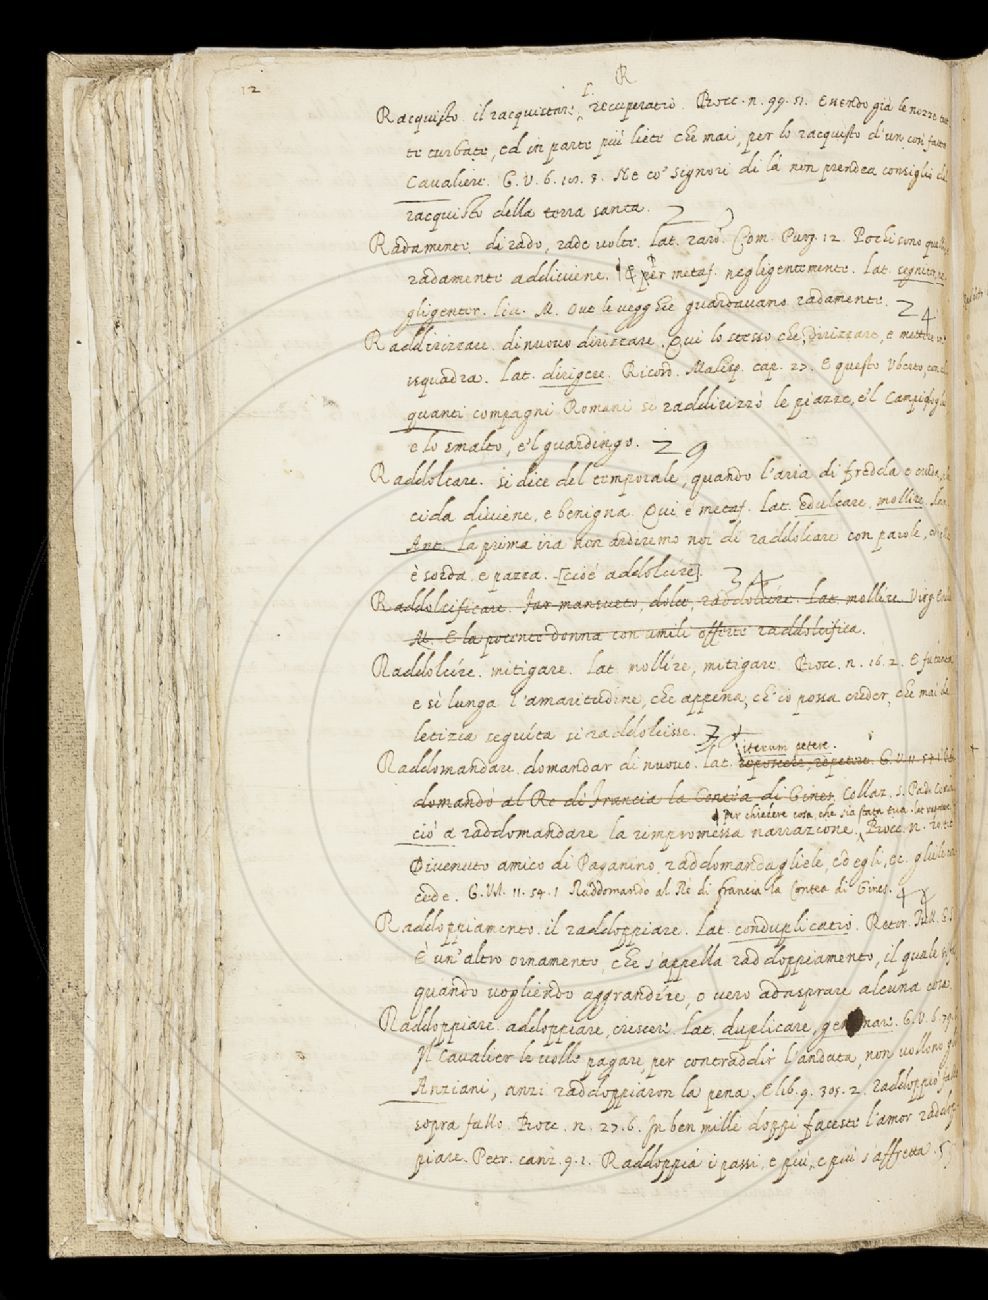 12
R
Racquisto. il racquistare, L. recuperatio. Bocc. n. 99. 51. Essendo già le nozze
te turbate, ed in parte più liete che mai, per lo racquisto d'un così fatto
Cavaliere. G. V. 6. 8. Ne co' Signori di là non prendea consiglio
racquisto della terra santa.
Radamente. di rado, rade volte. Lat. raro. Com. Purg. 12. Pochi sono
radamente addiviene. E per metaf. negligentemente. Lat. segniter,
gligenter. Liv. M. Ove le vegghie guardavano radamente. 24
Raddirizzare. di nuovo dirizzare. Qui lo stesso che, Dirizzare, e mettere
isquadra. Lat. dirigere. Ricord. Malisp. cap. 27. E questo Uberto,
quanti compagni Romani si raddirizzò le piazze, e'l Campidoglio
e lo smalto, e'l guardingo. 29
Raddolcare. si dice del temporale, quando l'aria di fredda e cruda,
cida diviene, e benigna. Qui è metaf. Lat. edulcare, mollire.
Ant. La prima ira non ardiremo noi di raddolcare con parole,
è sorda e pazza. [cioè addolcire]. 34
Raddolcificare. Far mansueto, dolce, raddolcire. Lat. mollire. Virg.
M. E la potente donna con umili offerte raddolcifica.
Raddolcire. mitigare. Lat. mollire, mitigare. Bocc. n. 16. 2. E
e sì lunga l'amaritudine, che appena, ch'io possa creder, che mai
letizia seguita si raddolcisse.
iterum petere.
Raddomandare. domandar di nuovo. Lat. reposcere, repetere. G. V. 11. 54. 1
domandò al Re di Francia la Contea di Gines. Collaz. S. Pad.
per chiedere cosa, che sia stata tua. lat.
ciò a raddomandare la rimpromessa narrazione. Bocc. n.
Divenuto amico di Paganino, raddomandagliele, ed egli, ec. gliele
cede. G. Vil. 11. 54. 1 Raddomandò al Re di francia la Contea di Gines.
Raddoppiamento. il raddoppiare. Lat. conduplicatio. Retor.
È un'altro ornamento, che s'appella raddoppiamento, il quale
quando vogliendo aggrandire, o vero adasprare alcuna cosa
Raddoppiare. addoppiare, crescere. Lat. duplicare, geminare. G. V. 6.
Il Cavalier le volle pagare, per contraddir l'andata, non vollono
Anziani, anzi raddoppiaron la pena. E lib. 9. 305. 2. raddoppiò
sopra fallo. Bocc. n. 27. 6. In ben mille doppi faceste l'amor
piare. Petr. canz. 9. 1. Raddoppia i passi, e più, e più s'affretta.